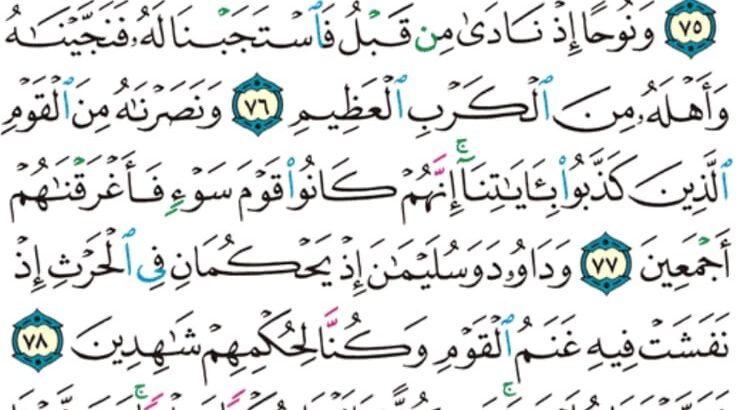 ٧٥ وَنُوحًا إِذْ نَادَىٰ مِن قَبْلُ فَٱسْتَجَبْنَا لَهُۥ فَنَجَّيْنَٰهُ
وَأَهْلَهُۥ مِنَ ٱلْكَرْبِ ٱلْعَظِيمِ ٧٦ وَنَصَرْنَٰهُ مِنَ ٱلْقَوْمِ
ٱلَّذِينَ كَذَّبُوا۟ بِـَٔايَٰتِنَآ ۚ إِنَّهُمْ كَانُوا۟ قَوْمَ سَوْءٍ فَأَغْرَقْنَٰهُمْ
أَجْمَعِينَ ٧٧ وَدَاوُۥدَ وَسُلَيْمَٰنَ إِذْ يَحْكُمَانِ فِى ٱلْحَرْثِ إِذْ
نَفَشَتْ فِيهِ غَنَمُ ٱلْقَوْمِ وَكُنَّا لِحُكْمِهِمْ شَٰهِدِينَ ٧٨